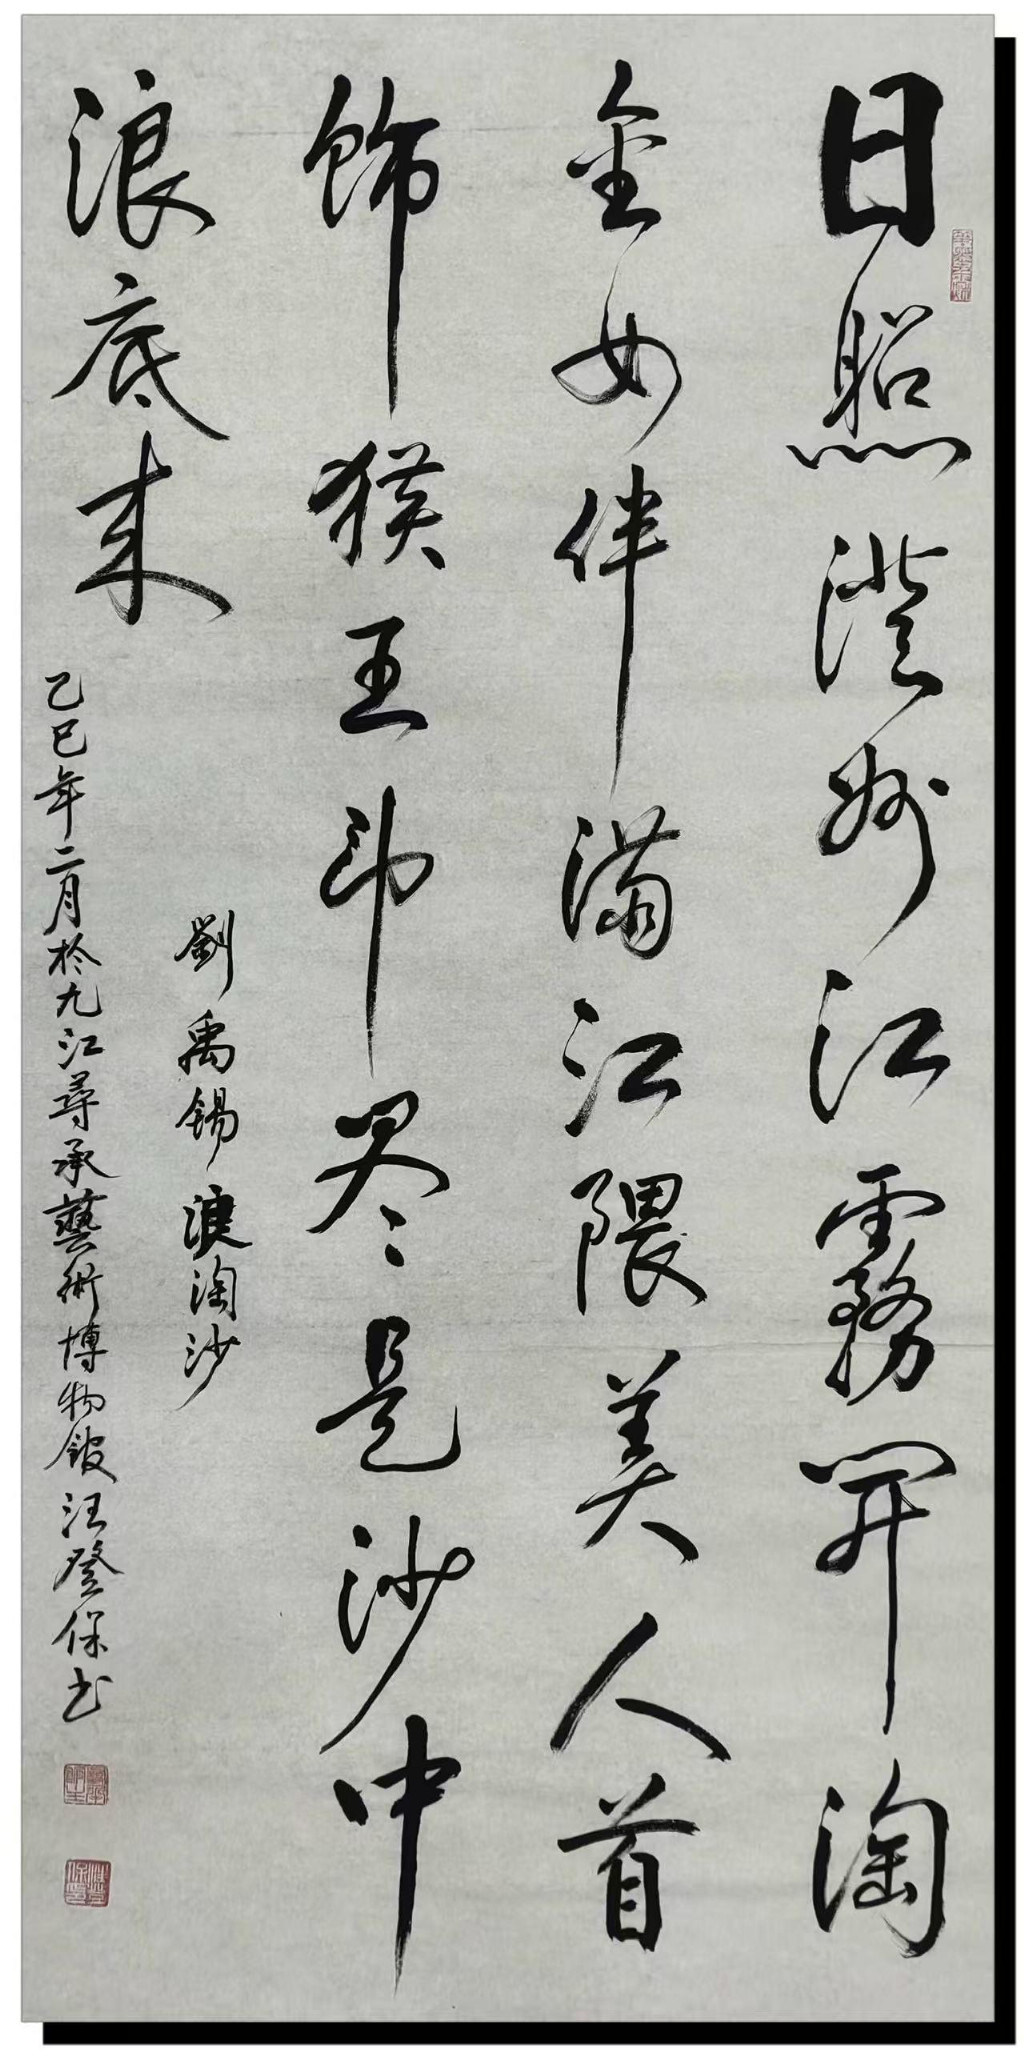 日照澄州江霧開淘
金女伴满江隈美人首
飾猴王印尽是沙中
浪底来
劉禹锡浪淘沙
乙巳年二月於九江尋承藝術博物館汪登保书